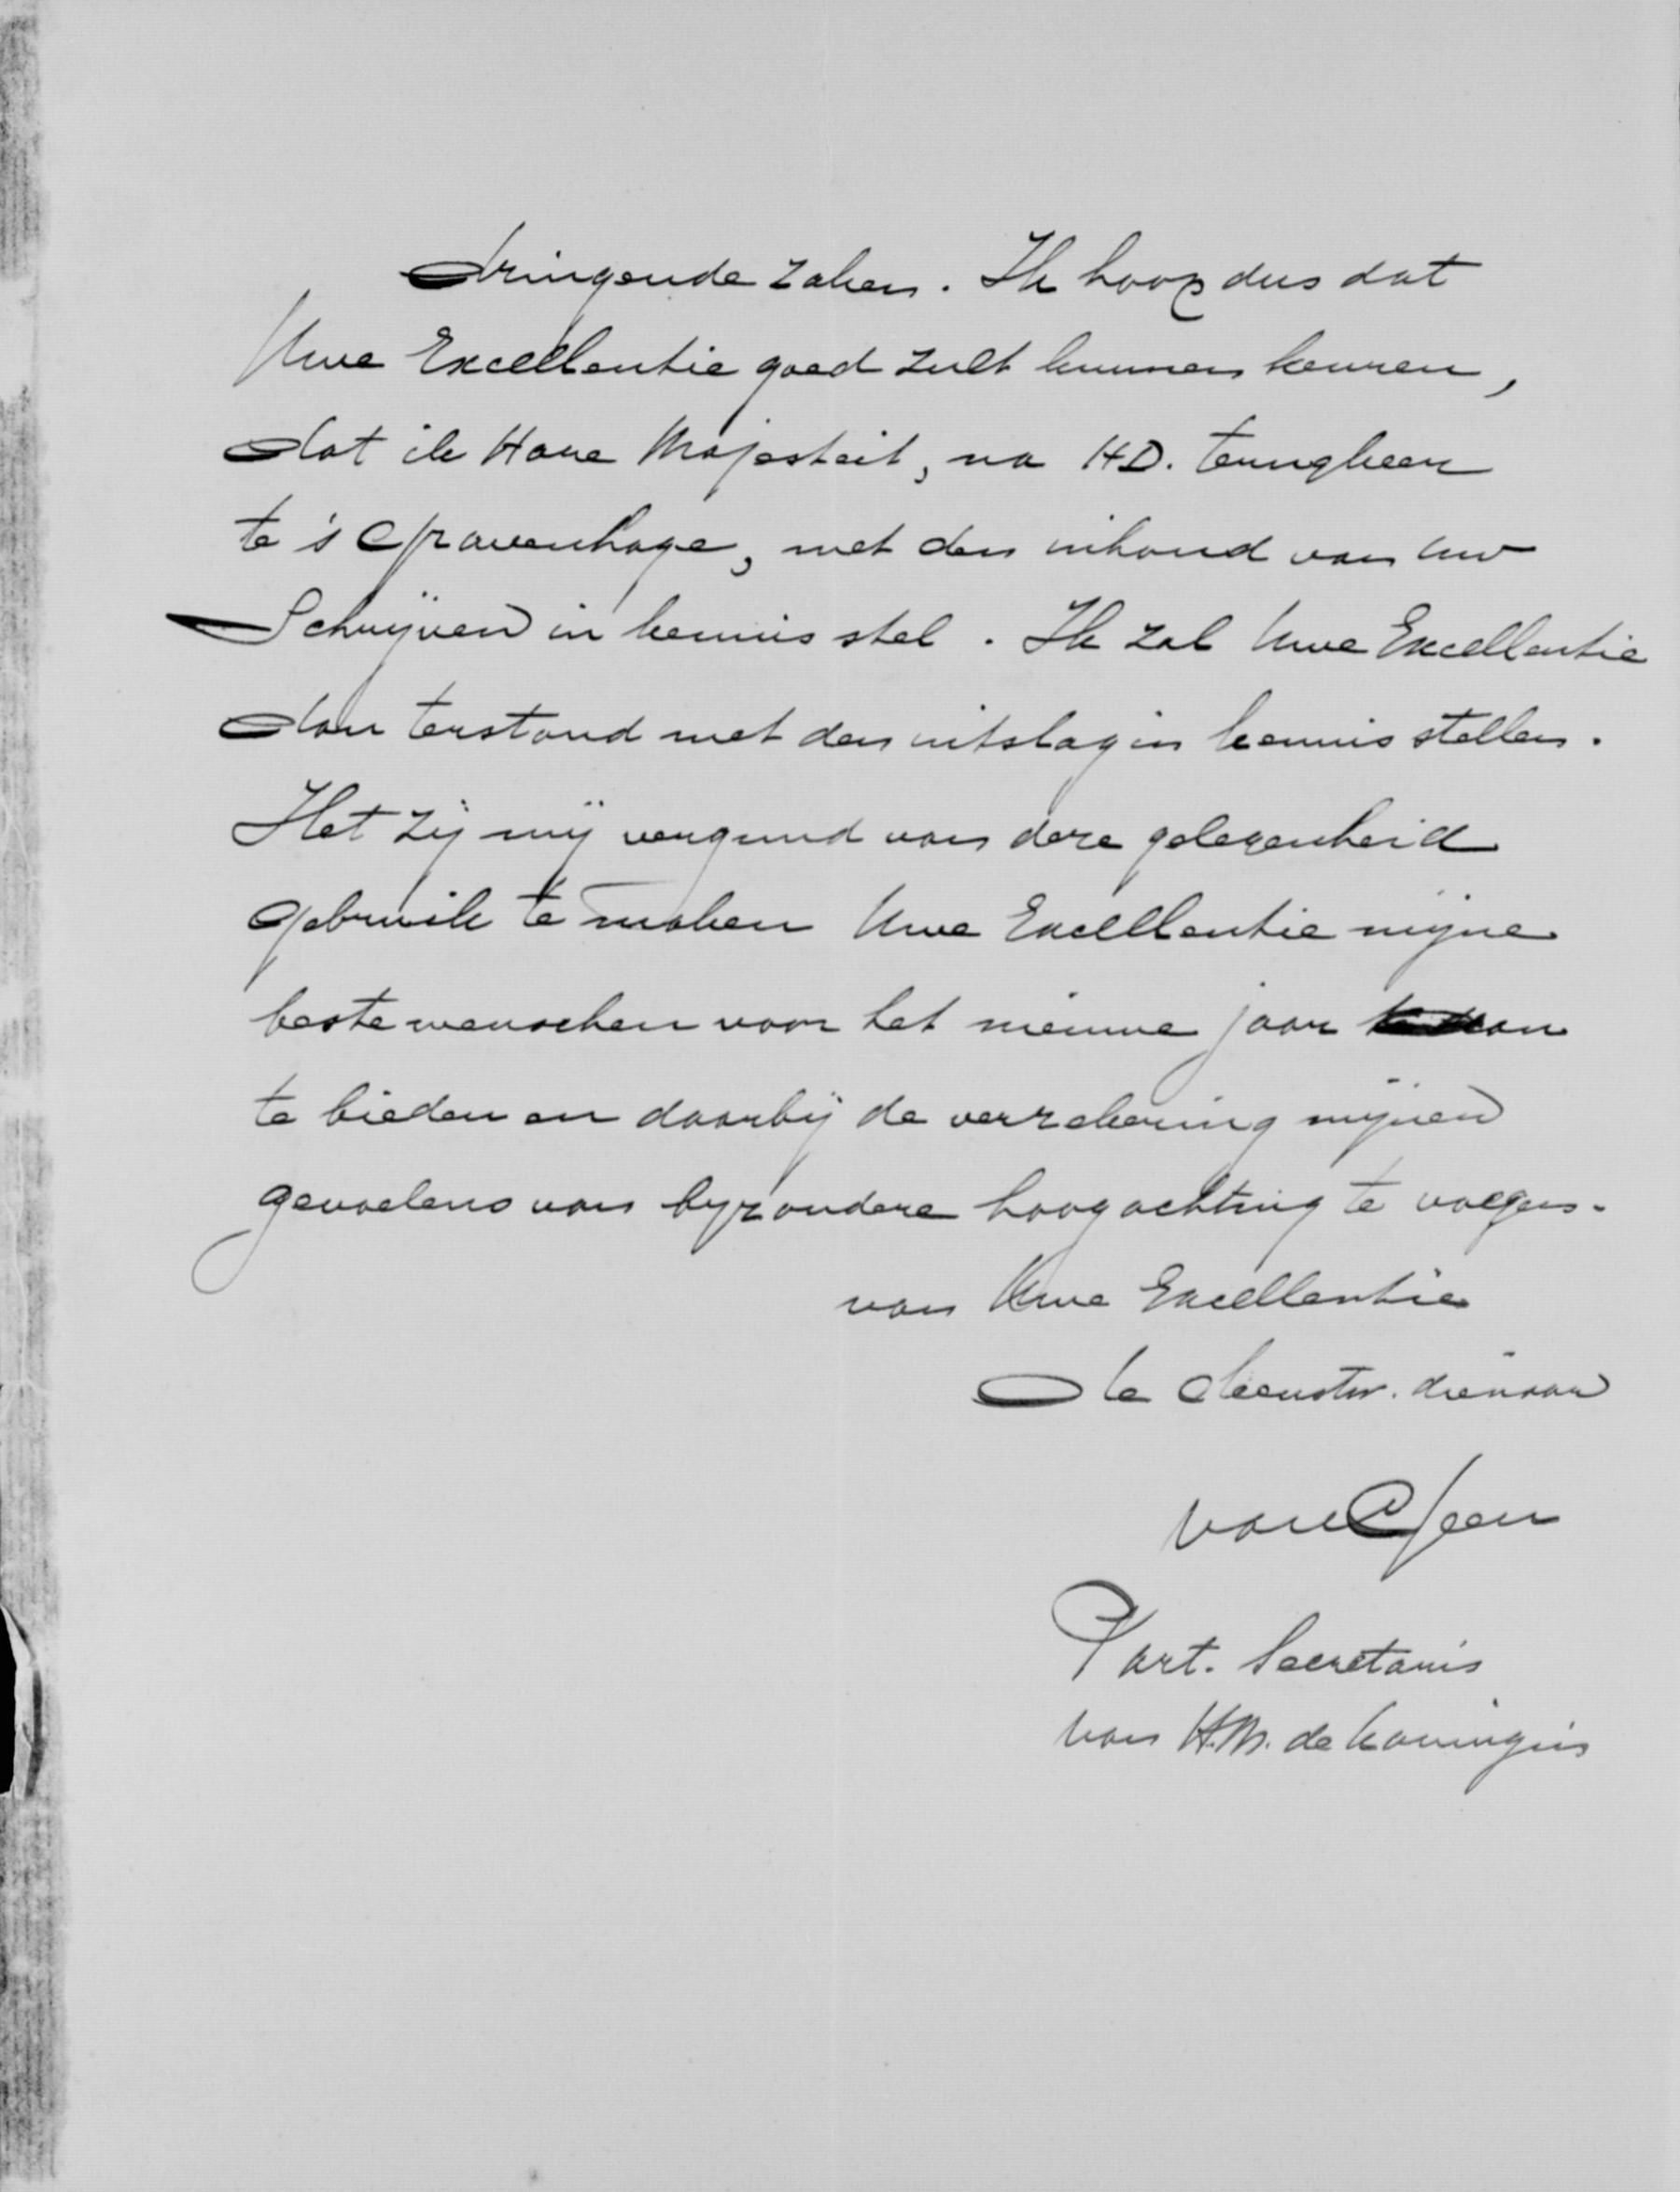 dringende zaken. Ik hoop dus dat
Uwe Excellentie goed zult kunnen keuren,
dat ik Hare Majesteit, na HD. terugkeer
te 's Gravenhage, met den inhoud van uw
Schrijven in kennis stel. Ik zal Uwe Excellentie
dan terstond met den uitslag in kennis stellen.
Het zij mij vergund van deze gelegenheid
gebruik te maken Uwe Excellentie mijne
beste wenschen voor het nieuwe jaar aan
te bieden en daarbij de verzekering mijner
gevoelens van byzondere hoogachting te voegen.
van Uwe Excellentie
de dienstw. dienaar
van Geen
Part. Secretaris
van H.M. de Koningin